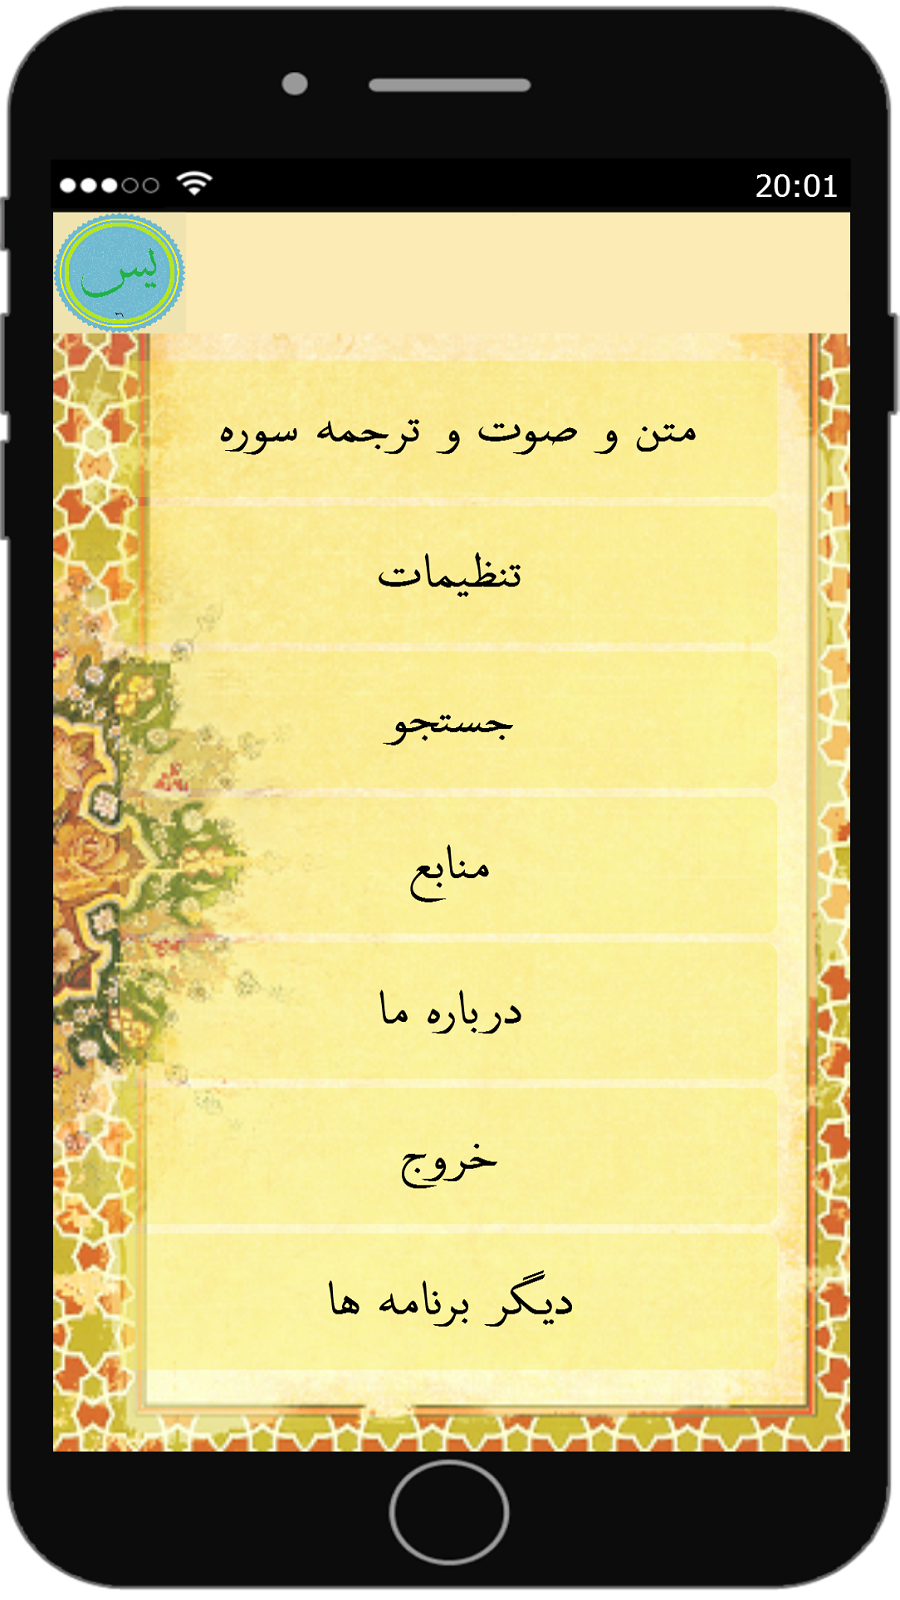 20:01
یس
متن و صوت و ترجمه سوره
تنظیمات
جستجو
منابع
درباره ما
خروج
دیگر برنامه ها